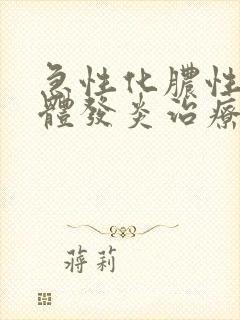 急性化膿性
體發炎治療
蔣莉